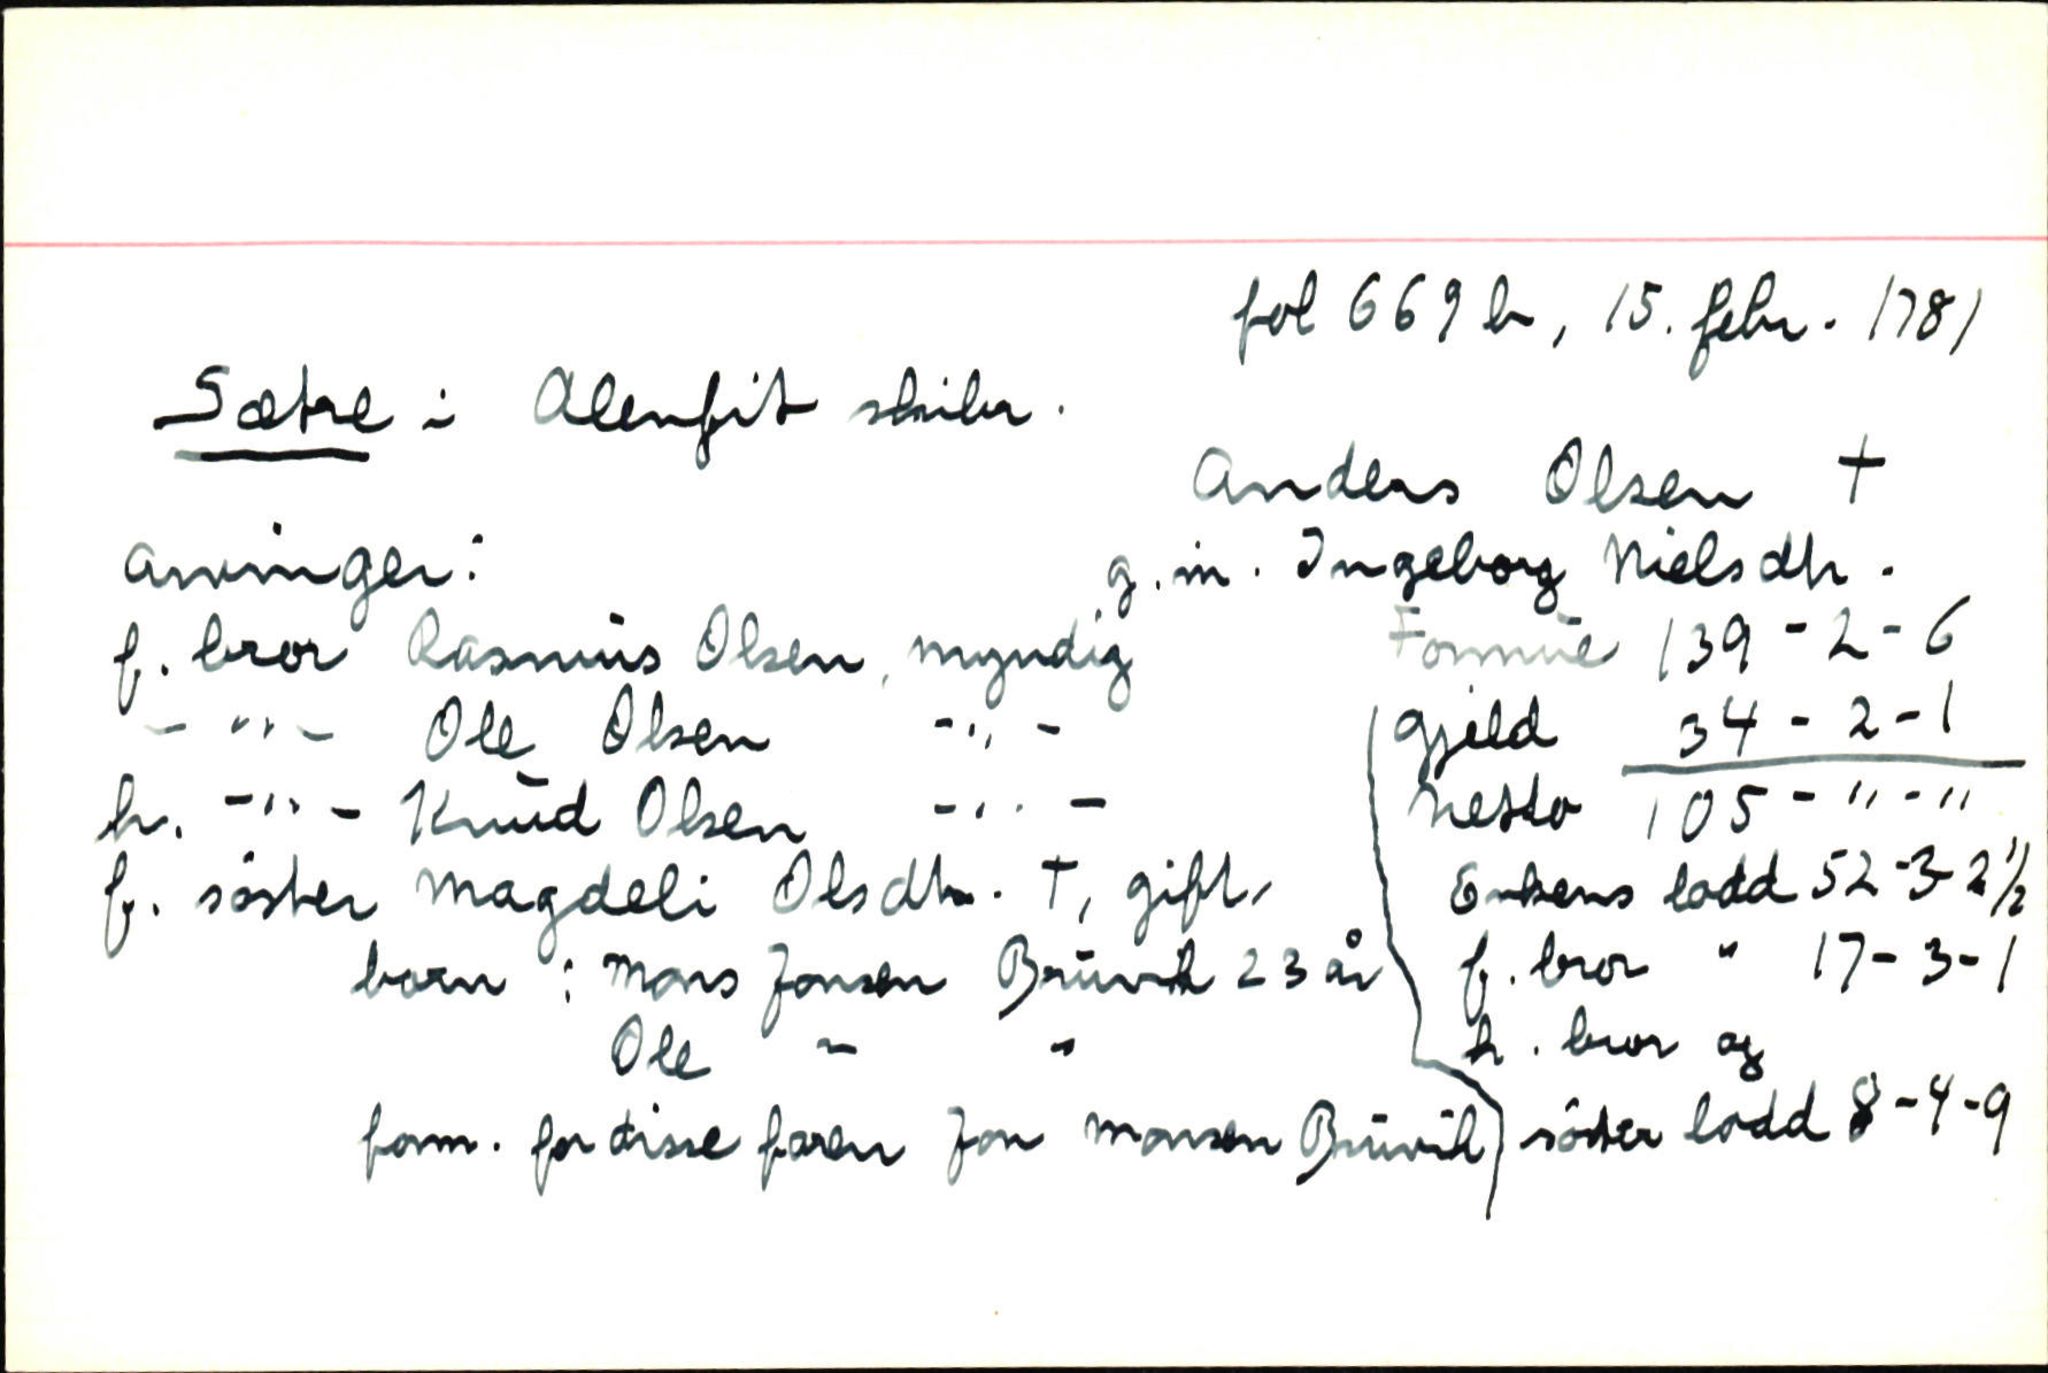 fol 669 b, 15. febr. 1781
Sætre i Alenfit skibr.
Anders Olsen †
arvinger:
g. m. Ingeborg Nielsdtr.
f. bror Rasmus Olsen, myndig
-"- Ole Olsen -"-
h. -"- Knud Olsen -"-
f. söster Magdeli Olsdtr. †, gift,
born : Mons Jonsen Bruvik 23 år
Ole " "
form. for disse faren Jon Monsen Bruvik
Formue 139-2-6
Gjeld 34-2-1
Netto 105-"-"
Enkens lodd 52-3-2 1/2
f. bror " 17-3-1
h. bror og
söster lodd 8-4-9